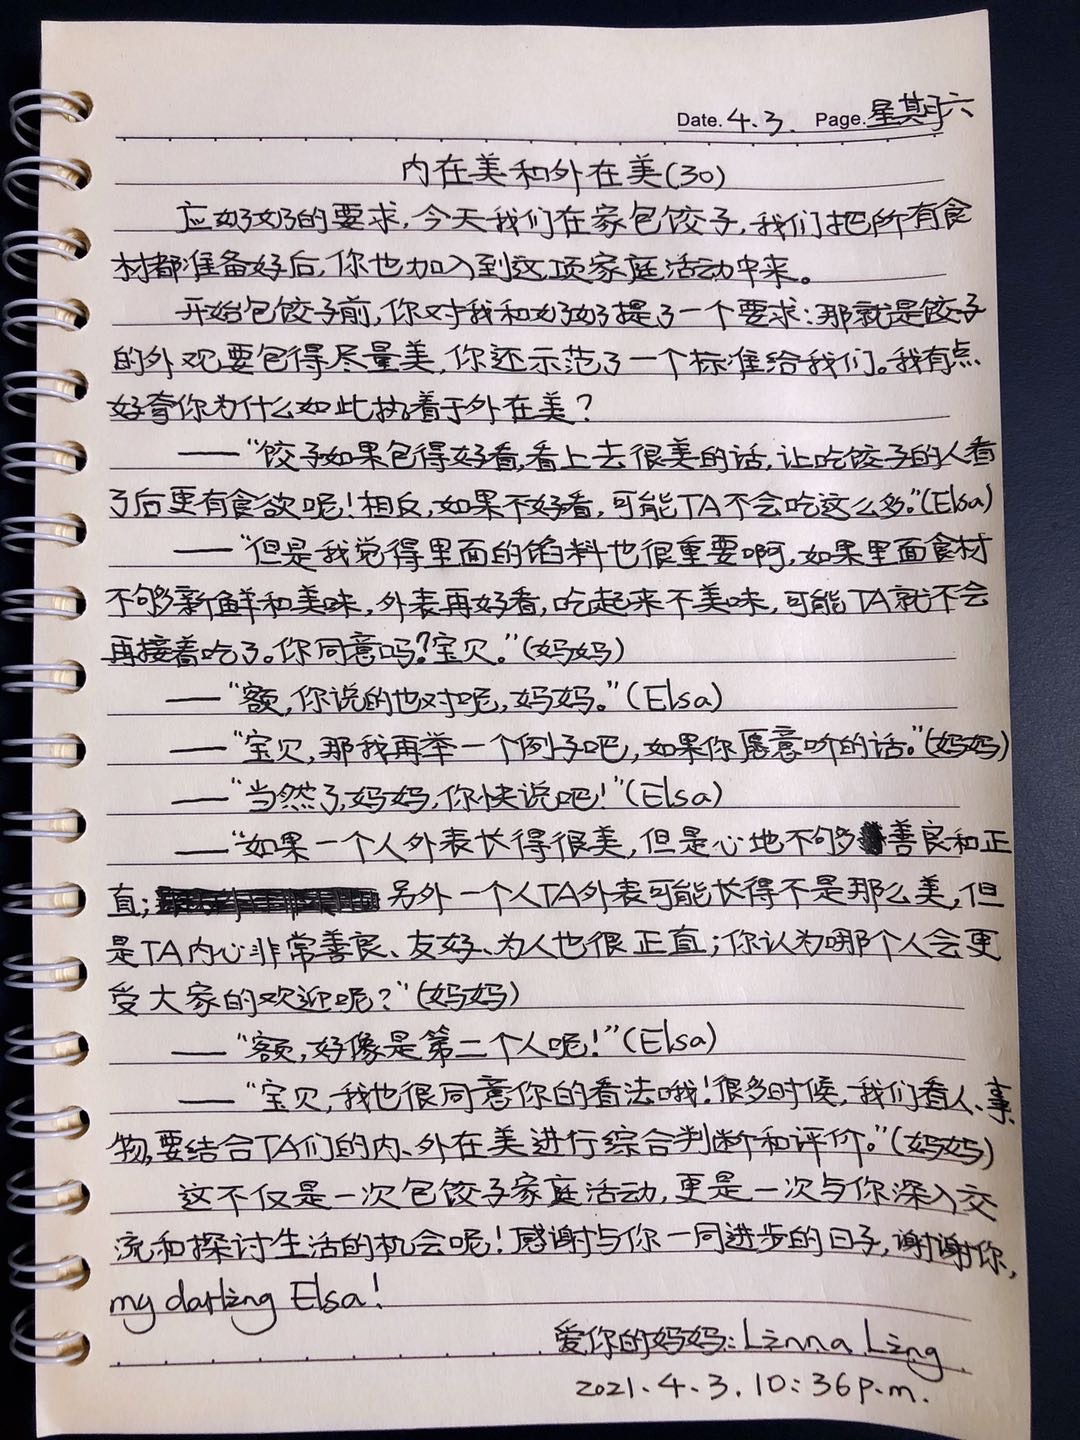 Date. 4.3. Page. 星期六
内在美和外在美(30)
应好好的要求，今天我们在家包饺子，我们把所有食
材都准备好后，你也加入到这项家庭活动中来。
开始包饺子前，你对我和好好提了一个要求：那就是饺子
的外观要包得尽量美，你还示范了一个标准给我们。我有点
好奇你为什么如此执着于外在美？
——“饺子如果包得好看，看上去很美的话，让吃饺子的人看
了后更有食欲呢！相反，如果不好看，可能TA不会吃这么多。”(Elsa)
——“但是我觉得里面的馅料也很重要啊，如果里面食材
不够新鲜和美味，外表再好看，吃起来不美味，可能TA就不会
再接着吃了。你同意吗？宝贝。”(妈妈)
——“额，你说的也对呢，妈妈。”(Elsa)
——“宝贝，那我再举一个例子吧，如果你愿意听的话。”(妈妈)
——“当然了，妈妈，你快说吧！”(Elsa)
——“如果一个人外表长得很美，但是心地不够善良和正
直；另外一个人TA外表可能长得不是那么美，但
是TA内心非常善良、友好、为人也很正直；你认为哪个人会更
受大家的欢迎呢？”(妈妈)
——“额，好像是第二个人呢！”(Elsa)
——“宝贝，我也很同意你的看法哦！很多时候，我们看人、事、
物，要结合TA们的内、外在美进行综合判断和评价。”(妈妈)
这不仅是一次包饺子家庭活动，更是一次与你深入交
流和探讨生活的机会呢！感谢与你一同进步的日子，谢谢你，
my darling Elsa!
爱你的妈妈：Linna Ling
2021.4.3.10:36p.m.